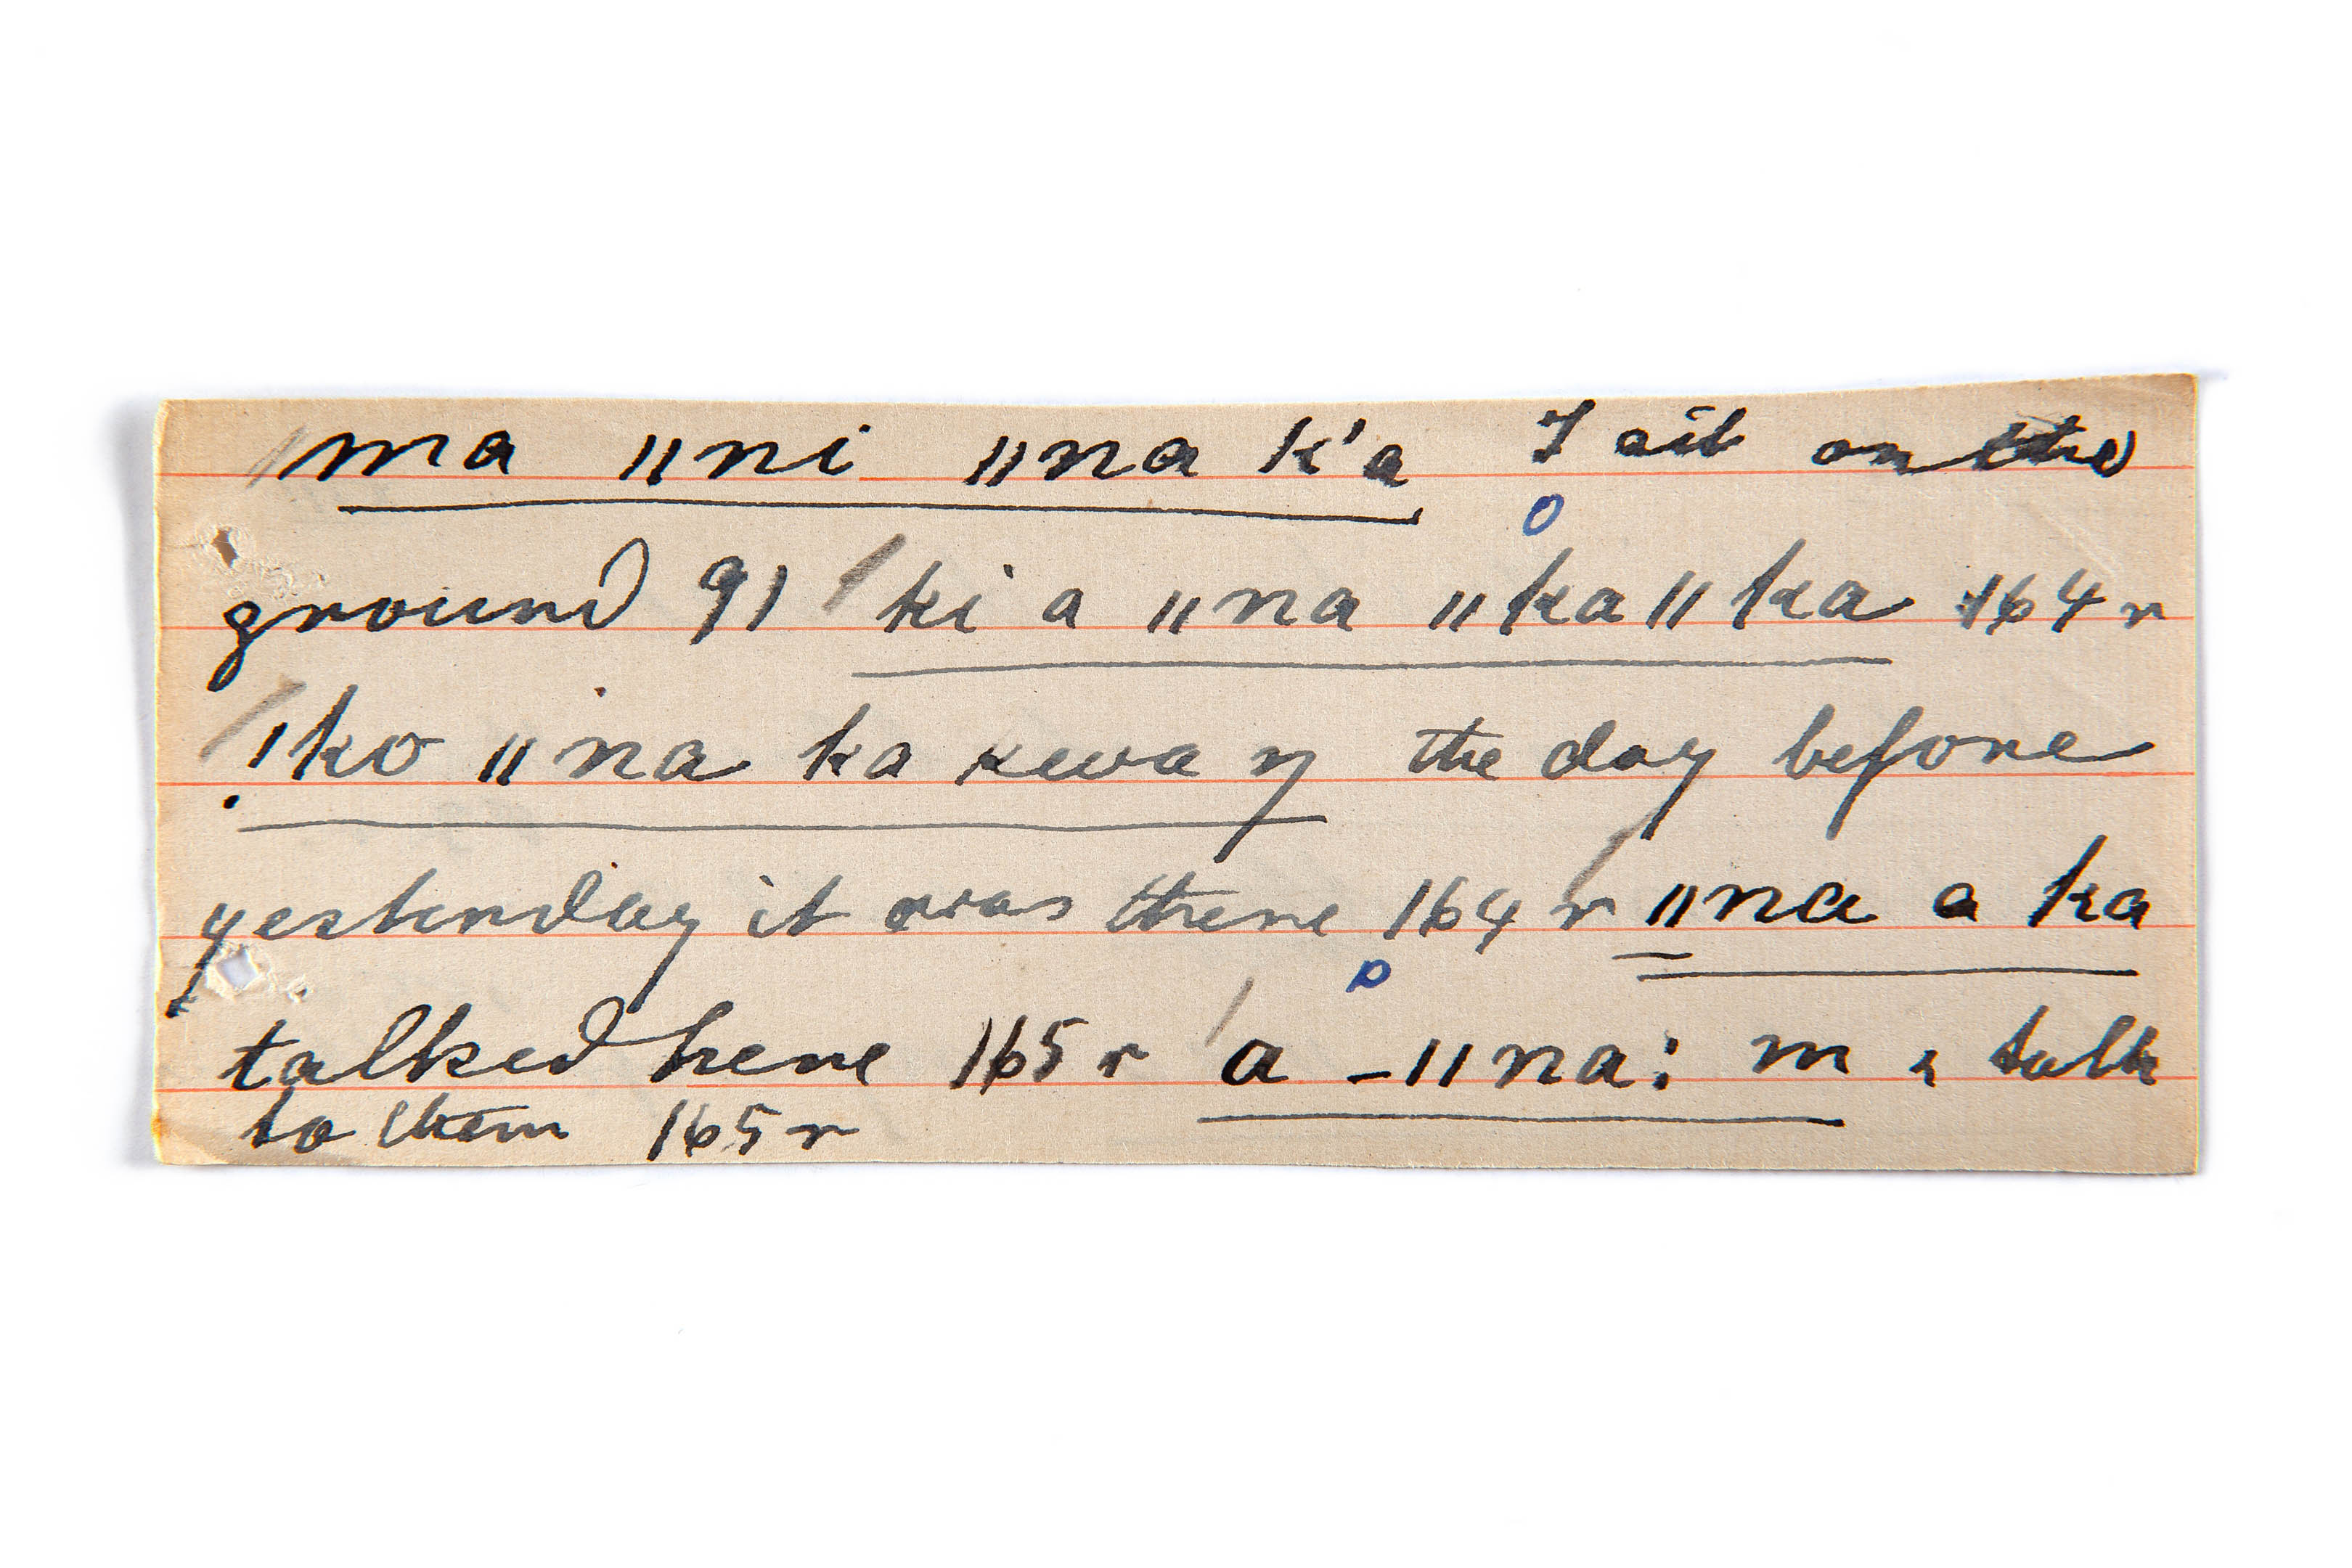 ma ǁni ǁna k'a I sit on the
ground 91 ki a ǁna ǁkaǁka 164 r
!ko ǁna ka keway the day before
yesterday it was there 164 r ǁna a ka
talked here 165 r a -ǁna: m talk
to them 165 r